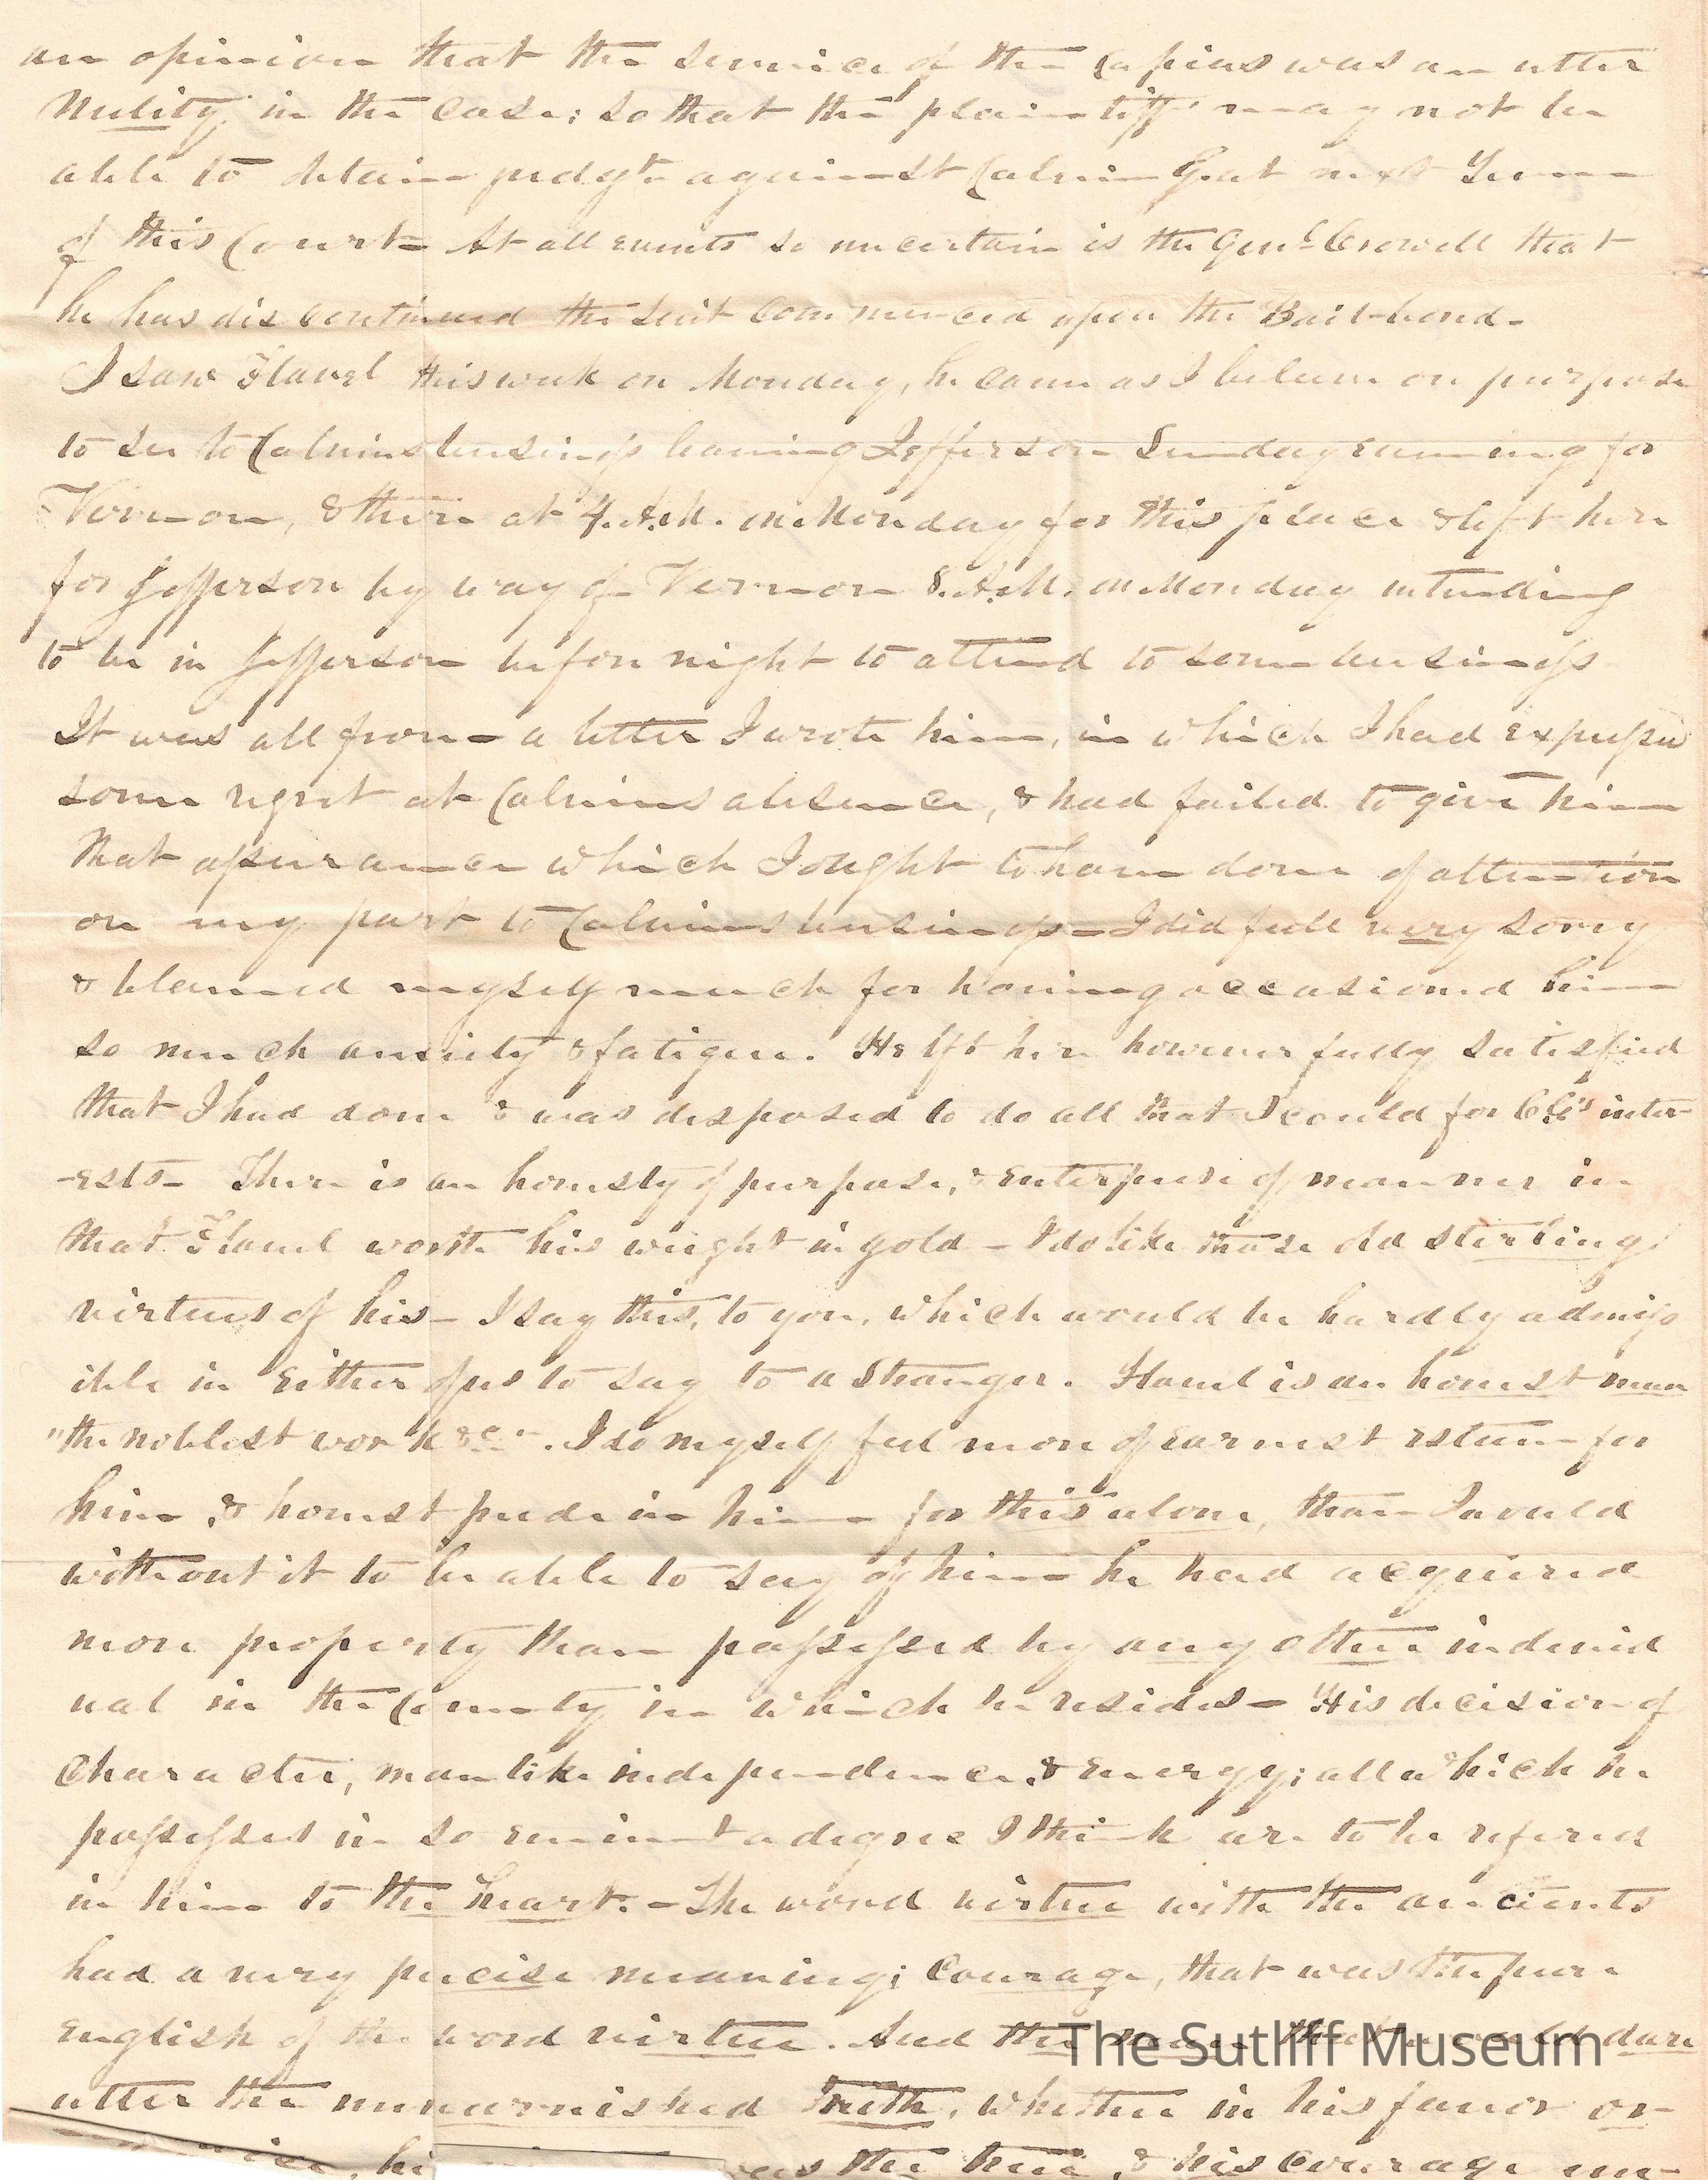 an opinion that the service of the Capias was an utter
Nulity in the case; so that the plaintiff may not be
able to obtain judgt. against Calvin G. at next Term
of this Court - At all events so uncertain is the Genl. Crowell that
he has discontinued the suit commenced upon the Bail-bond -
I saw Flavel this week on Monday, he came as I believe on purpose
to see to Calvins business leaving Jefferson Sunday evening for
Vernon, & there at 4. A.M. on Monday for this place & left here
for Jefferson by way of Vernon 8. A.M. on Monday intending
to be in Jefferson before night to attend to some business
It was all from a letter I wrote him, in which I had expressed
some regret at Calvins absence, & had failed to give him
that assurance which I ought to have done of attention
on my part to Calvins business - I did feell very sorry
& blamed myself much for having occasioned him
so much anxiety & fatigue. He left here however fully satisfied
that I had done & was desposed to do all that I could for C.G's inter-
-ests - There is an honesty of purpose, & enterprise of manner in
that Flavel worth his weight in gold - I do like those old sterling
virtues of his - I say this, to you, which would be hardly admiss
ible in either of us to say to a Stranger. Flavel is an honest man
"the noblest work &c". I do myself feel more of earnest esteem for
him, & honest pride in him for this alone, than I would
without it to be able to say of him he had acquired
more property than possessed by any other individ
ual in the County in which he resides - His decision of
Character, manlike independence, & energy; all which he
possesses in so eminent a degree I think are to be refered
in him to the heart. - The word virtue with the ancients
had a very precise meaning; Courage, that was the pure
english of the word virtue. And the man that would dare
utter the unvarnished Truth, whether in his favor or
was the true, & his Courage un-
The Sutliff Museum